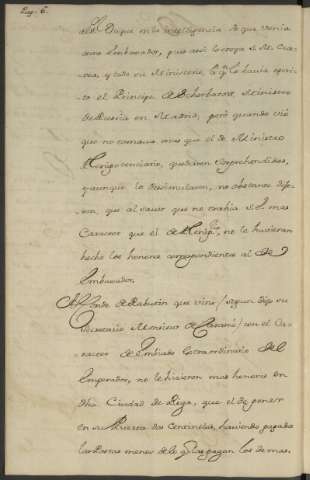 Pag. 6.
el Duque mas inteligencia de que venia
como Embaxador, pues assi lo creyo S. M. Cza-
rea, y todo su Ministerio, q.e lo havia escri-
to el Principe de Scherbatow, Ministro
de Rusia en Madrid, pero quando vio
que no tomava mas que el de Ministro
Plenipotenciario, quedaron sorprehendidos,
y aunque lo desimularon, no obstante dije-
ron, que al saver que no trahia S. E. mas
Caracter que el de Plenip.º, no le huvieran
hecho los honores correspondientes al de
Embaxador.
Al Conde de Rabutin que vino / segun dijo su
Secretario Monsieur de / con el Ca-
racter de Embiado Extraordinario del
Emperador, no le hicieron mas honores en
dha Ciudad de Riga, que el de poner
en su Puerta dos Centinelas, haviendo pagado
las Postas menos de lo q.e las pagan los demas,